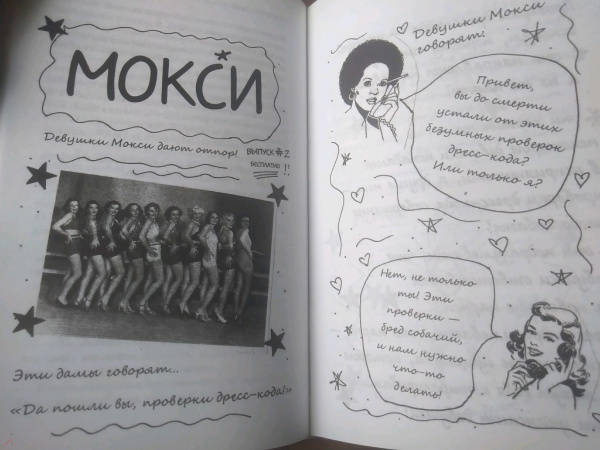 МОКСИ
Девушки Мокси дают отпор!
ВЫПУСК #2
БЕСПЛАТНО!!
Эти дамы говорят...
«Да пошли вы, проверки дресс-кода!»
Девушки Мокси
говорят:
Привет,
вы до смерти
устали от этих
безумных проверок
дресс-кода?
Или только я?
Нет, не только
ты! Эти
проверки —
бред собачий,
и нам нужно
что-то
делать!